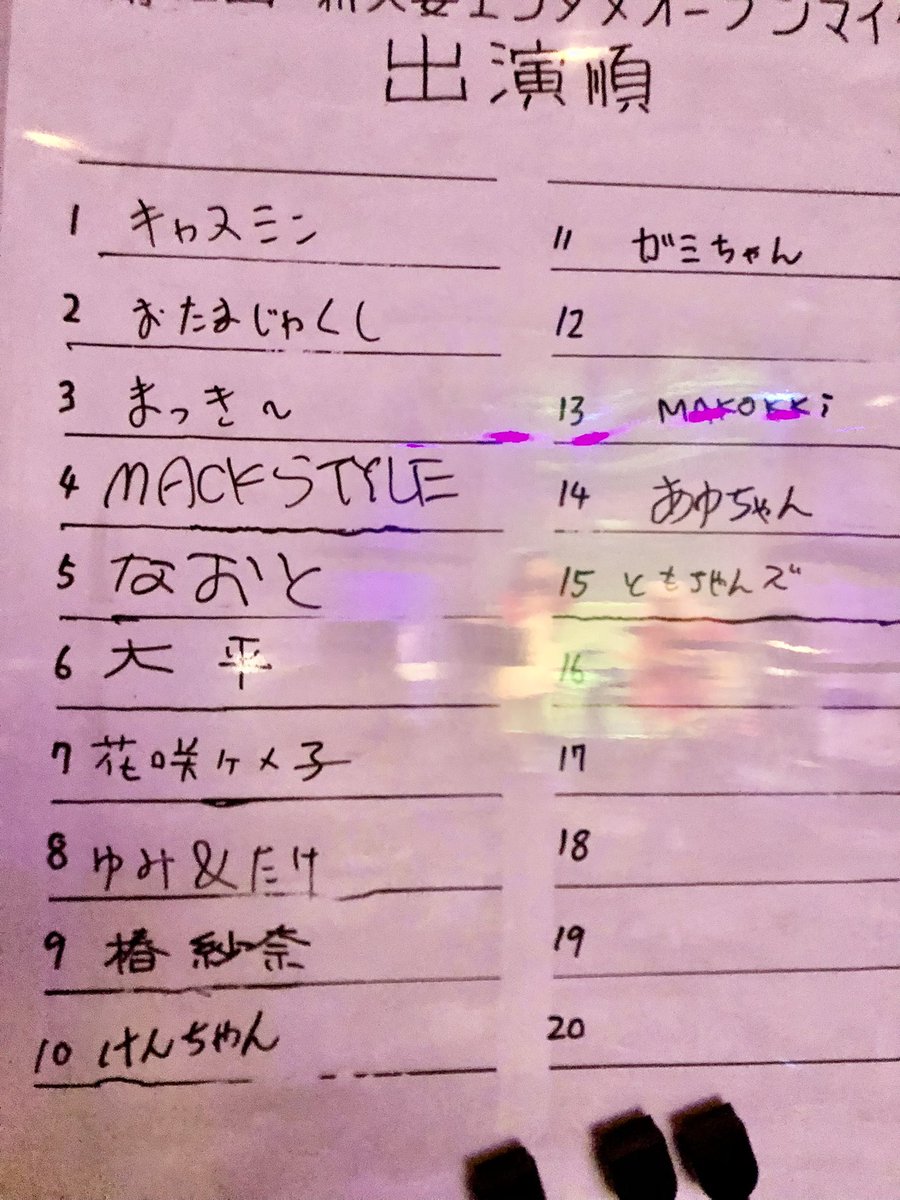 エンタメオープンマイ
出演順
1 キャスミン
2 おたまじゃくし
3 まっき〜
4 MACKSTYLE
5 なおと
6 大平
7 花咲ケメ子
8 ゆみ&たけ
9 椿 紗奈
10 けんちゃん
11 ガミちゃん
12
13 MAKOKKi
14 あゆちゃん
15 ともちゃんズ
16
17
18
19
20